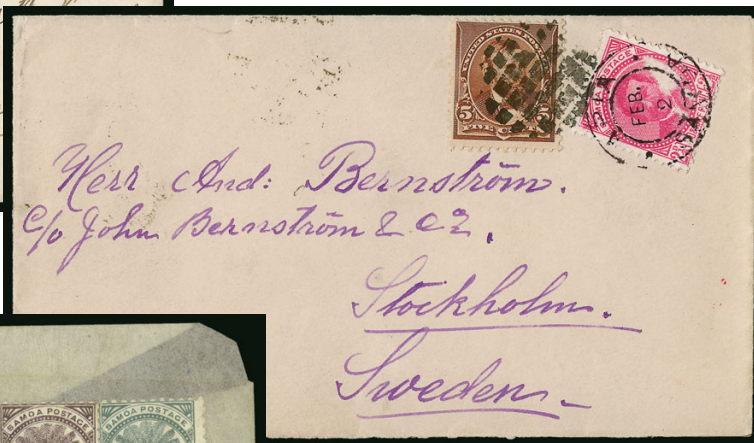 UNITED STATES POSTAGE
5
FIVE
SAMOA POSTAGE
FEB.
2
Herr And: Bernström.
c/o John Bernström & Co.,
Stockholm.
Sweden
SAMOA POSTAGE
SAMOA POSTAGE